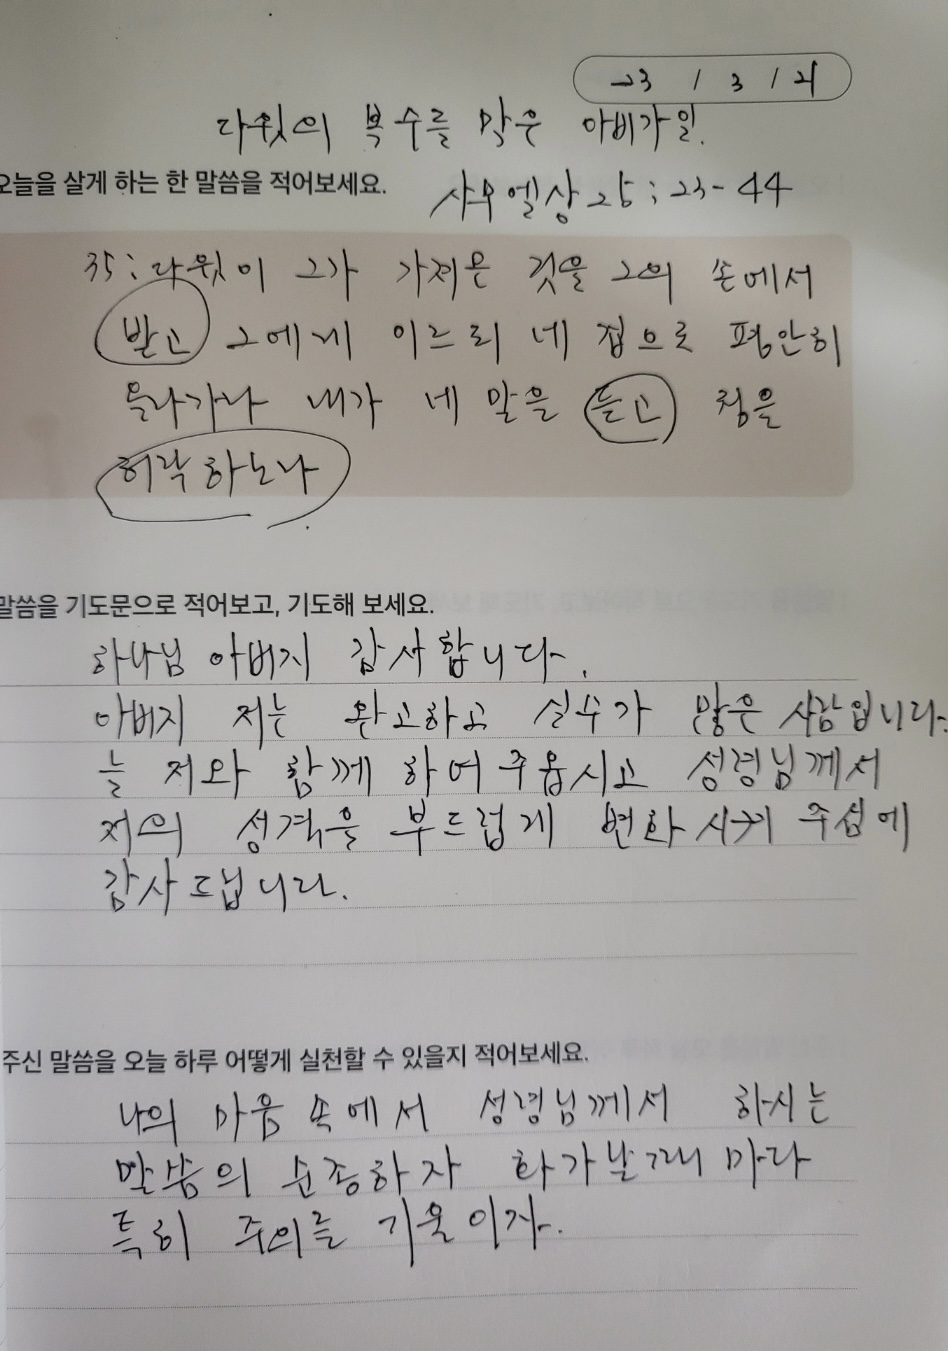 23 / 3 / 21
다윗의 복수를 막은 아비가일.
오늘을 살게 하는 한 말씀을 적어보세요.
사무엘상 25 : 23 - 44
35 : 다윗이 그가 가져온 것을 그의 손에서
받고 그에게 이르되 네 집으로 평안히
올라가라 내가 네 말을 듣고 청을
허락하노라
말씀을 기도문으로 적어보고, 기도해 보세요.
하나님 아버지 감사합니다.
아버지 저는 완고하고 실수가 많은 사람입니다.
늘 저와 함께 하여 주옵시고 성령님께서
저의 성격을 부드럽게 변화 시켜 주심에
감사드립니다.
주신 말씀을 오늘 하루 어떻게 실천할 수 있을지 적어보세요.
나의 마음 속에서 성령님께서 하시는
말씀의 순종하자 화가날 때 마다
특히 주의를 기울이자.